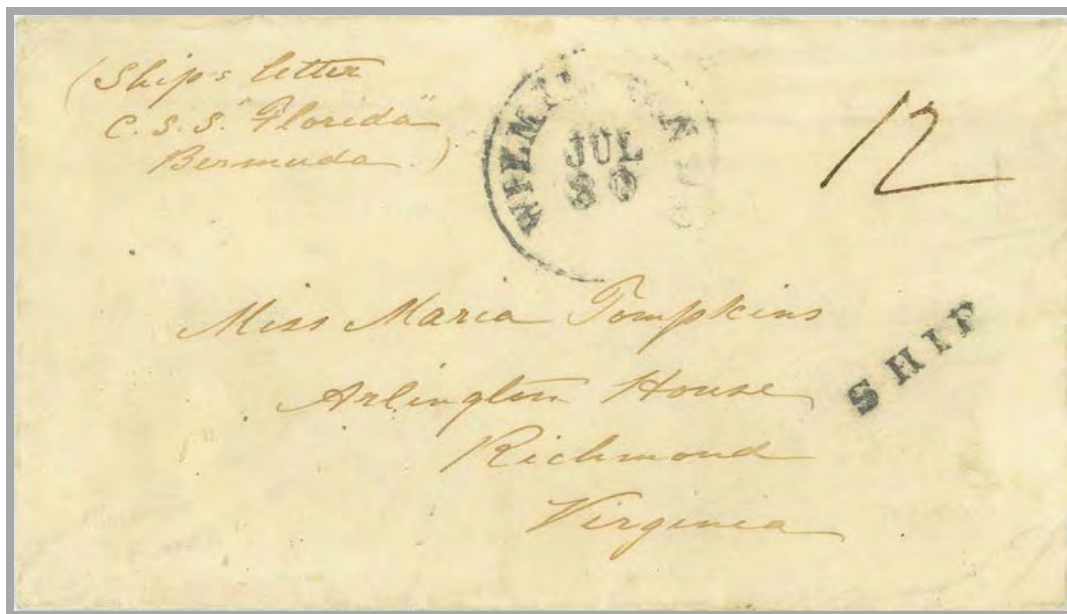 (Ship's letter
C.S.S. "Florida"
Bermuda.)
JUL
30
12
Miss Maria Tompkins
SHIP
Arlington House
Richmond
Virginia